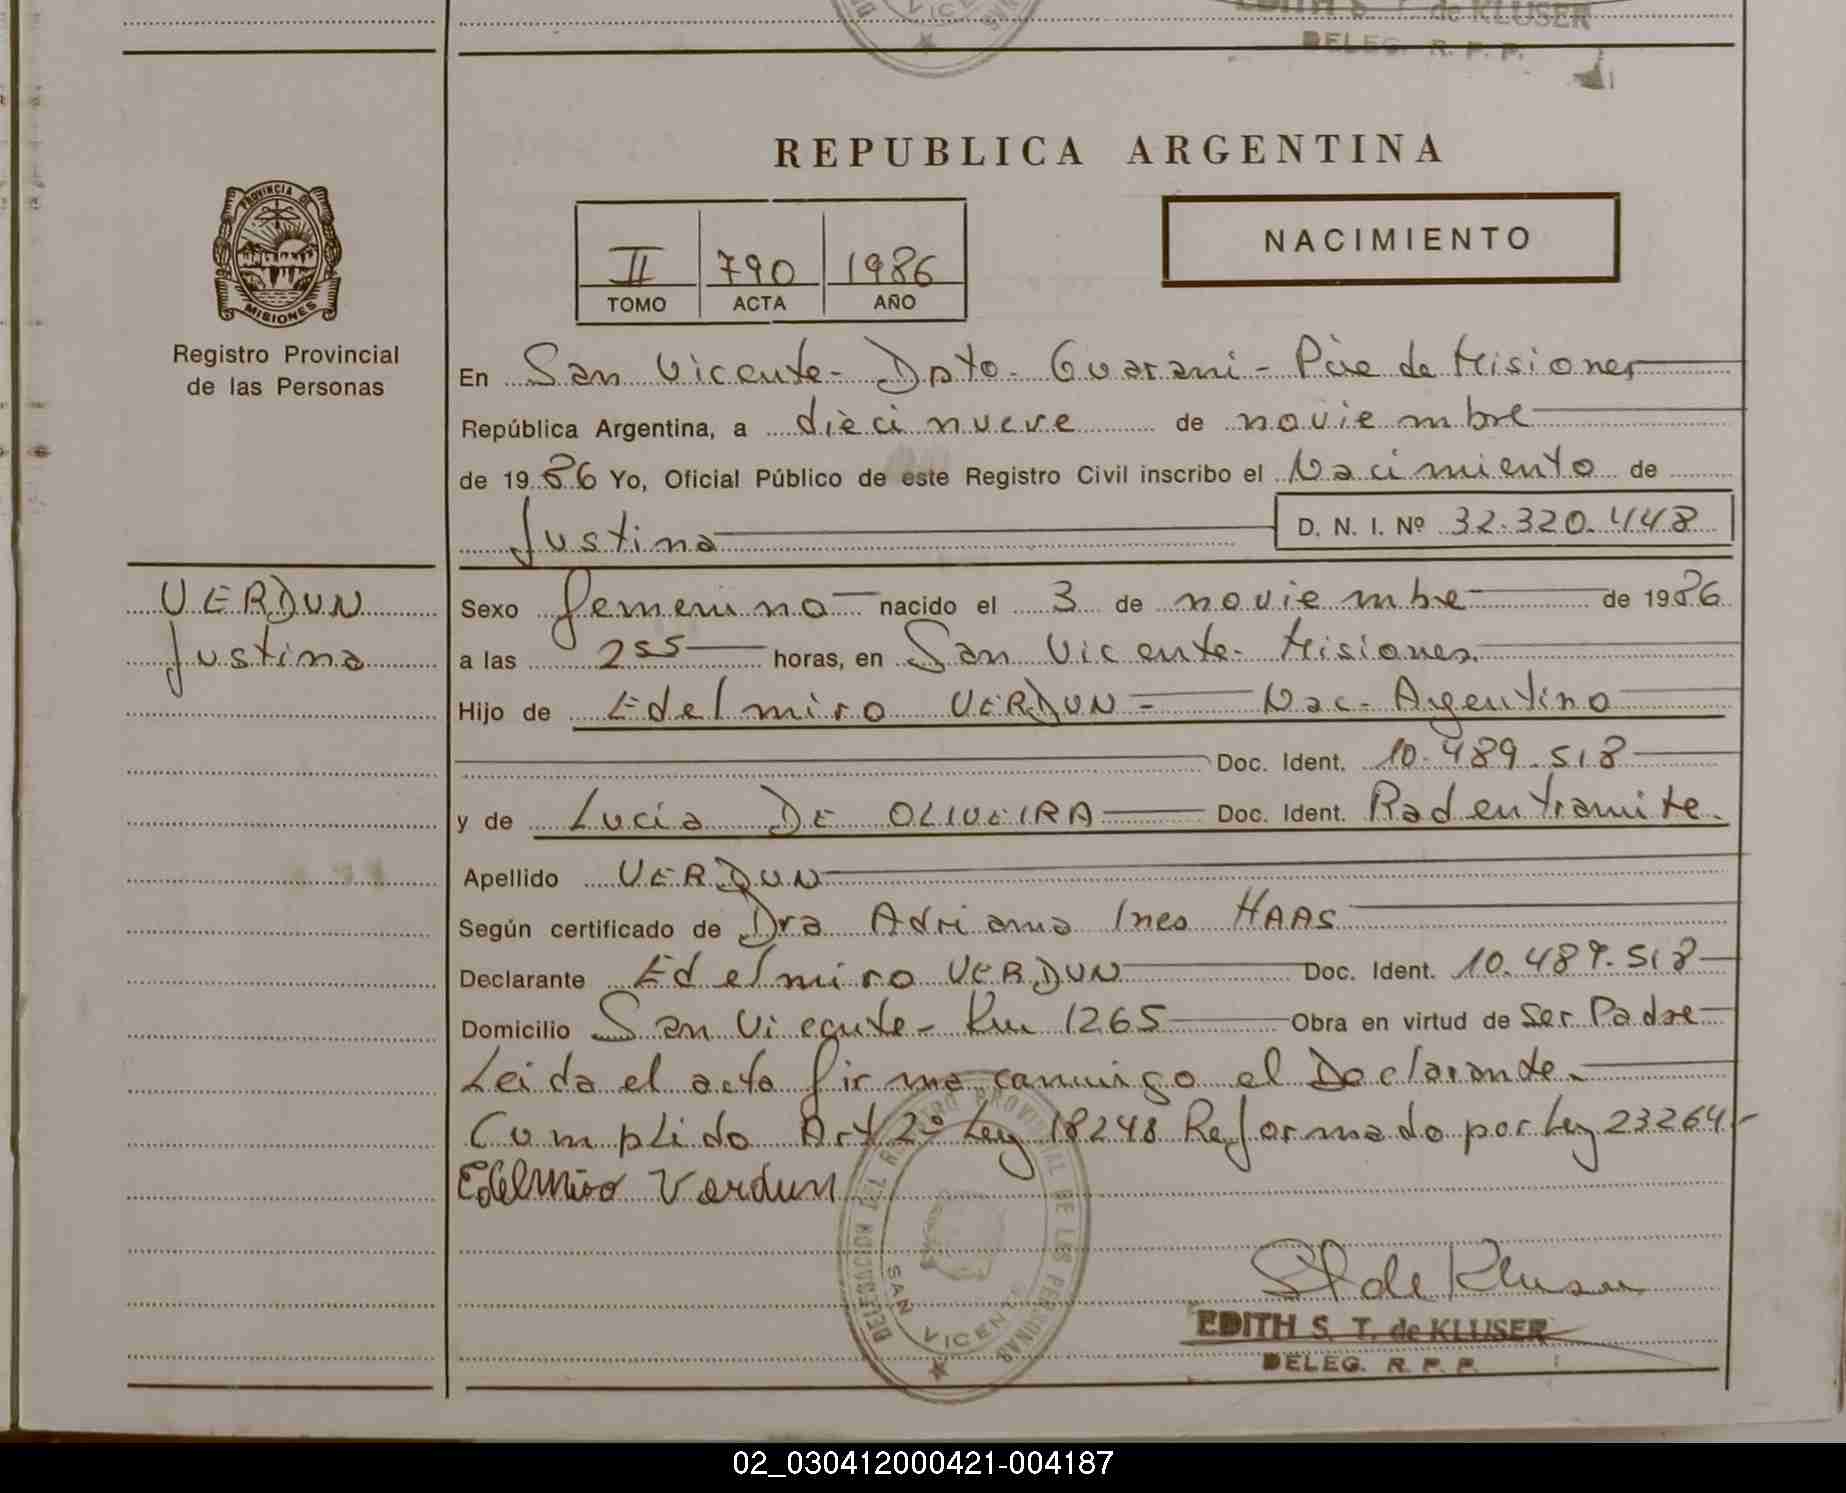 EDITH S. T. de KLUSER
DELEG. R. P. P.
REPUBLICA ARGENTINA
PROVINCIA DE
MISIONES
Registro Provincial
de las Personas
II 790 1986
TOMO ACTA AÑO
NACIMIENTO
En San Vicente - Dpto - Guarani - Pcie de Misiones
República Argentina, a diecinueve de noviembre
de 1986 Yo, Oficial Público de este Registro Civil inscribo el Nacimiento de
Justina D. N. I. Nº 32.320.448
VERDUN
Justina
Sexo femenino nacido el 3 de noviembre de 1986
a las 2 55 horas, en San Vicente - Misiones
Hijo de Edelmiro VERDUN - Nac - Argentino
Doc. Ident. 10.489.518
y de Lucia DE OLIVEIRA Doc. Ident. Rad en tramite.
Apellido VERDUN
Según certificado de Dra Adriana Ines HAAS
Declarante Edelmiro VERDUN Doc. Ident. 10.489.518
Domicilio San Vicente - Km 1265 Obra en virtud de Ser Padre
Leida el acta firma conmigo el Declarante.
Cumplido Art 2º Ley 18248 Reformado por Ley 23264 -
Edelmiro Verdun
DELEGACION DEL REGISTRO PROVINCIAL DE LAS PERSONAS
SAN VICENTE
EDITH S. T. de KLUSER
DELEG. R. P. P.
02_030412000421-004187